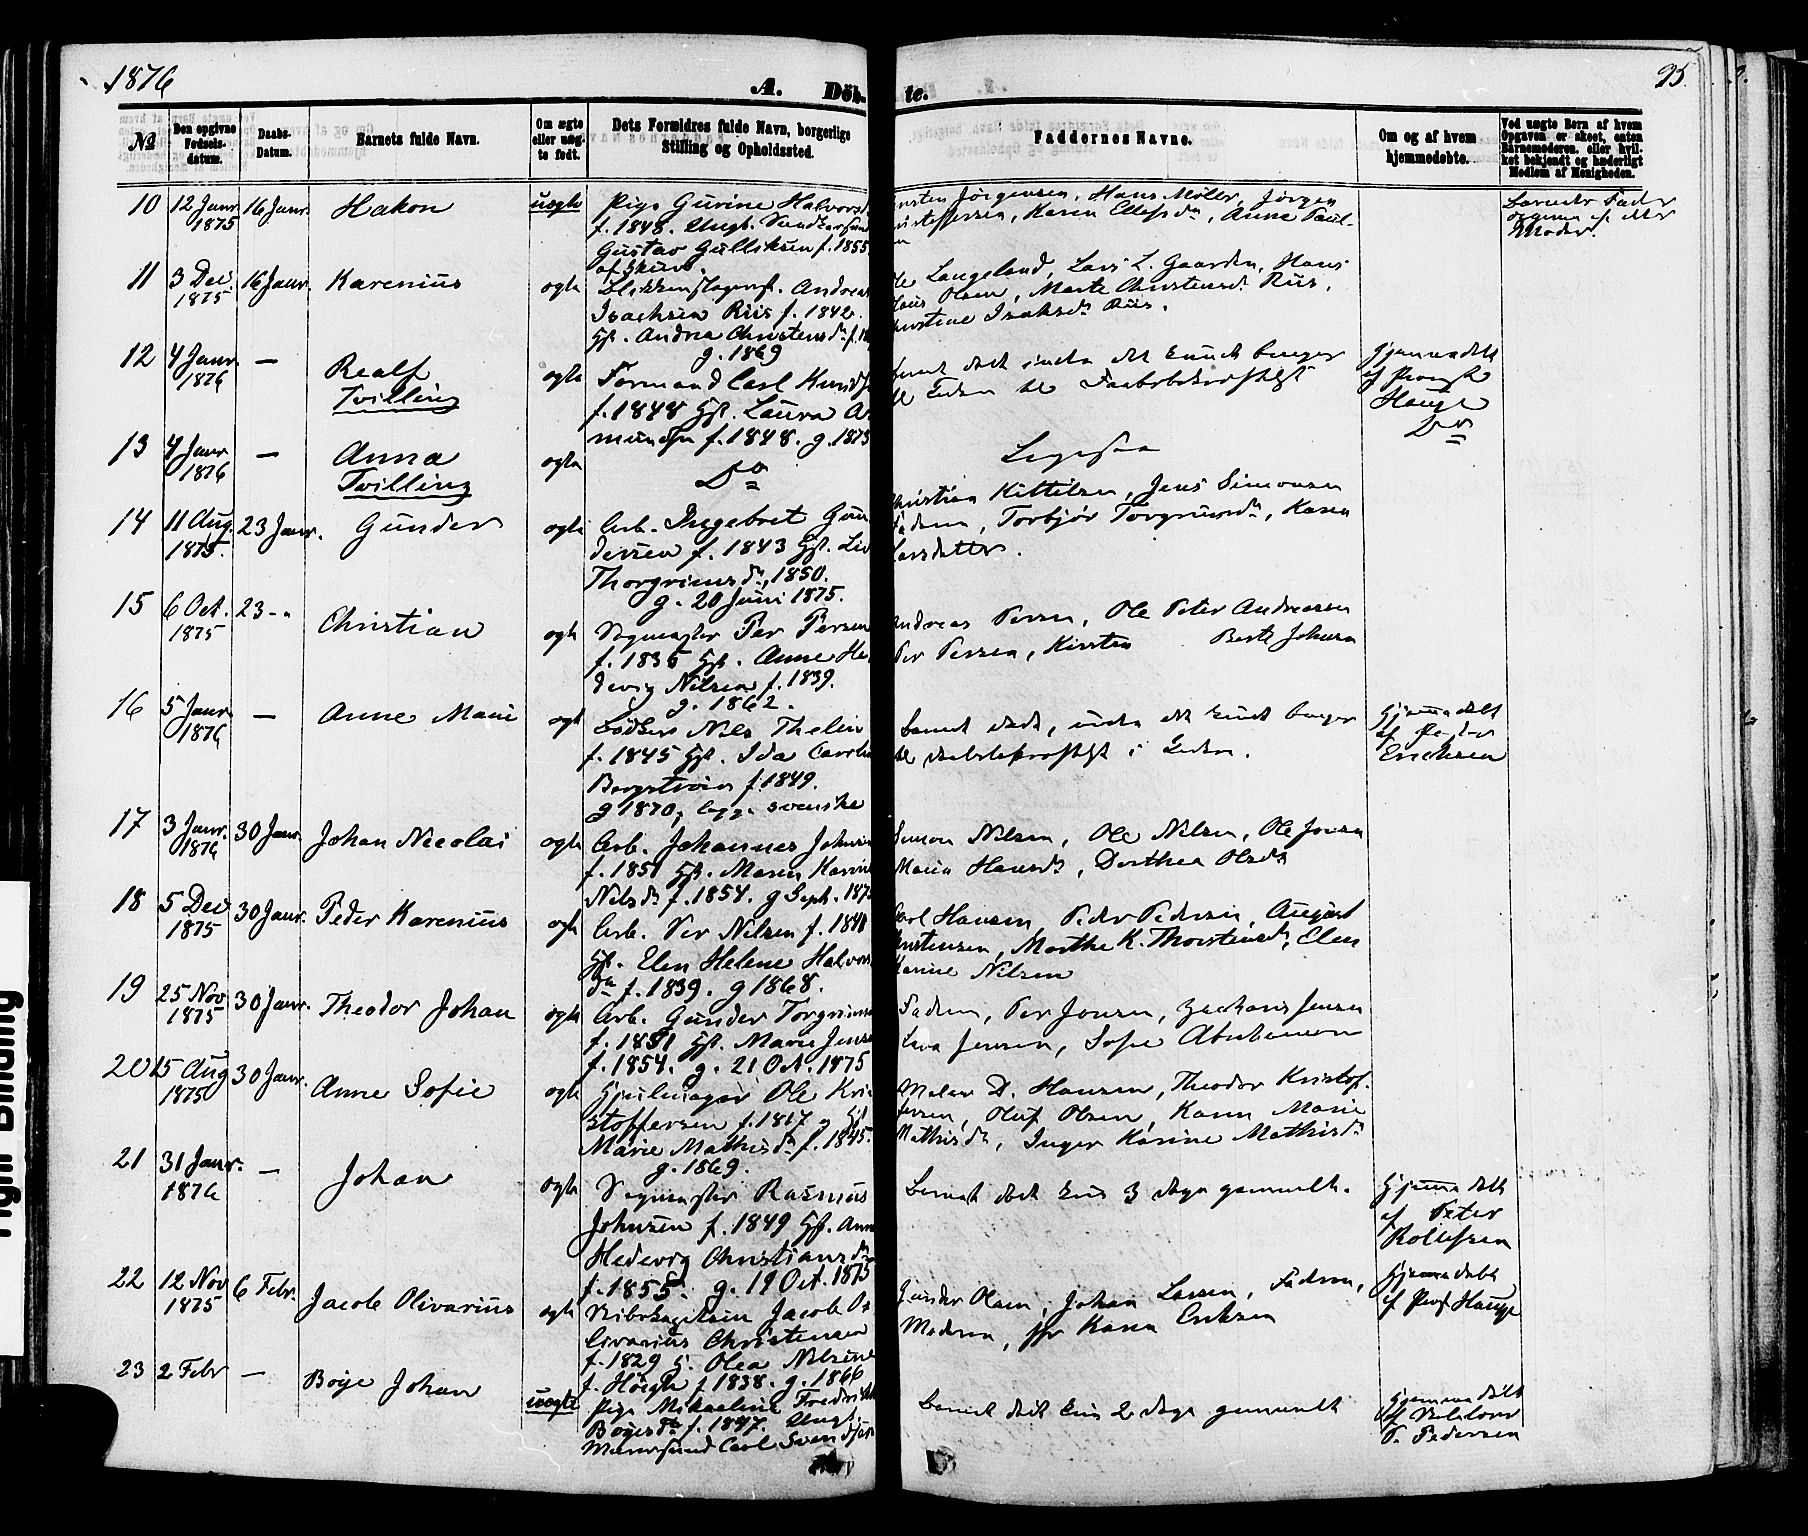 1876
A. Døb-
te.
95.
No
Den opgivne Fødsels-datum.
Daabs-Datum.
Barnets fulde Navn.
Om ægte eller uæg-te født.
Dets Forældres fulde Navn, borgerlige Stilling og Opholdssted.
Faddernes Navne.
Om og af hvem hjemmedøbte.
Ved uægte Børn af hvem Opgaven er skeet, enten Barnemoderen eller hvil-ket bekjendt og hæderligt Medlem af Menigheden.
10 12 Janr. 1875 16 Janr. Hakon uægte
Pige Gurine Halvorsd
f. 1848. Ungk.
Gustav Gulliksen f. 1855
Jørgensen, Hans Møller, Jørgen
Karen Ellefsdr, Anne Paul-
Barnets Fader
opgiven af dets
Moder.
11 3 Dec. 1875 16 Janr. Karenius ægte
Andreas
Isachsen Riis f. 1842.
Hst. Andrea Christensdr f.
g. 1869
Langeland, Lars L. Gaarden, Hans
Olsen, Marte Christensdr Riis,
Isaksdr Riis.
12 4 Janr. 1876 — Realf Tvilling ægte
Formand Carl Knuds
f. 1848 Hst. Laura As
mundsen f. 1848. g. 1873
Hjemmedøbt
af Provst
Hauge
Do
13 4 Janr 1876 — Anna Tvilling ægte
Do
Ligesaa
14 11 Aug. 1875. 23 Janr. Gunder ægte
Arb. Ingebret Gun
dersen f. 1843 Hst. Liv
Thorgrimsdr, 1850.
g. 20 Juni 1875.
Christian Kittilsen, Jens Simonsen
Faderen, Torbjør Torgrimsdr, Karen
Larsdatter.
15 6 Oct. 1875 23 — Christian ægte
Sagmester Per Persen
f. 1835 Hst. Anne He
devig Nilsen f. 1839.
g. 1862.
Andreas Persen, Ole Peter Andreassen
Per Persen, Kirsten Berte Johnsen
16 5 Janr. 1876 — Anne Marie ægte
Nils Thelin
f. 1845 Hst. Ida Carolin
Bergstrøm f. 1849.
g 1870, begge svenske
Barnet dødt, inden det kunde bringes
til Daabsbekræftelse i Kirken.
Hjemmedøbt
af
Ericksen
17 3 Janr. 1876 30 Janr. Johan Nicolai ægte
Arb. Johannes Johnsen
f. 1851 Hst. Maren Karine
Nilsdr f. 1854. g Sept. 1875
Simon Nilsen, Ole Nilsen, Ole Jonsen
Maria Hansdr, Dorthea Olsdr
18 5 Dec 1875 30 Janr. Peder Karenius ægte
Arb. Per Nilsen f. 1840
Hst. Elen Helene Halvors
dr f. 1839. g 1868.
Carl Hansen, Peder Pedersen, August
Christensen, Marthe K. Thorstensdr, Elen
Karine Nilsen
19 25 Nov 1875 30 Janr. Theodor Johan ægte
Arb. Gunder Torgrims
f. 1851 Hst. Marie Jens
f. 1854. g. 21 Oct. 1875
Faderen, Per Jonsen, Zackarias Jensen
Lava Jensen, Sofie Abrahamsen
20 15 Aug 1875 30 Janr. Anne Sofie ægte
Hjulmager Ole Kri
stoffersen f. 1847, Hst
Marie Mathisdr f. 1845.
g. 1869.
Maler D. Hansen, Theodor Kristof-
fersen, Oluf Olsen, Karen Marie
Mathisdr, Inger Karine Mathisdr
21 31 Janr. 1876 — Johan ægte
Sagmester Rasmus
Johnsen f. 1849 Hst. Ann
Hedevig Christiansdr
f. 1855. g. 19 Oct. 1875
Barnet dødt kun 3 dage gammelt.
Hjemmedøbt
af Peter
Rollefsen
22 12 Nov 1875 6 Febr. Jacob Olivarius ægte
Jacob O
livarius Christensen
f. 1829 H. Olea Nilsine
f. Høegh f 1838. g. 1866
Gunder Olsen, Johan Larsen, Faderen,
Moderen, Karen Eriksen
Hjemmedøbt
af Provst Hauge
23 2 Febr — Boye Johan uægte
Pige Mikaeline Fredrikke
Boyesdr f. 1847. Ungk.
Carl Svendsen
Barnet dødt kun 2 dage gammelt
Hjemmedøbt
af
P. Pedersen